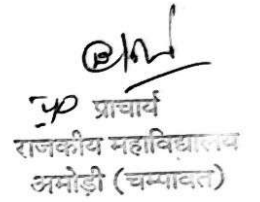 प्राचार्य
राजकीय महाविद्यालय
अमोड़ी (चम्पावत)